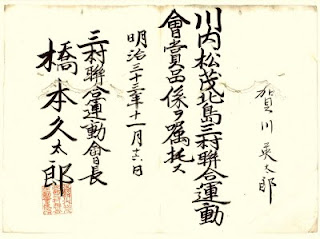 賀川英太郎
川内松茂北島三村聯合運動
會賞品係ヲ囑托ス
明治三十三年十一月十六日
三村聯合運動會長
橋本久太郎